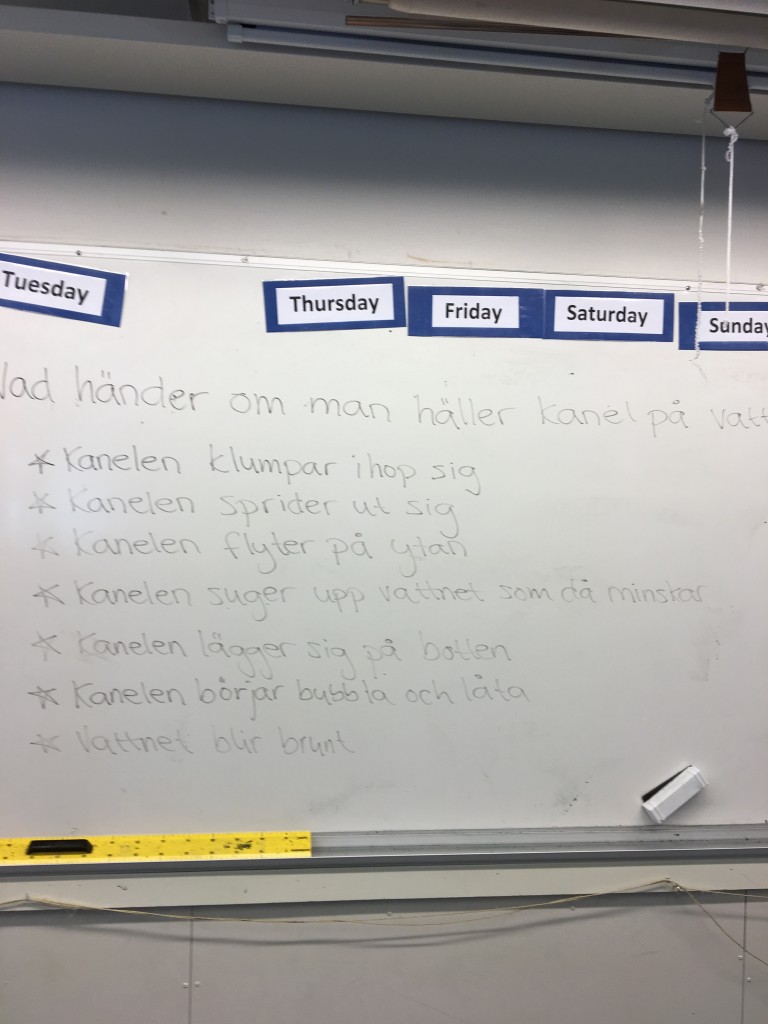 Tuesday Thursday Friday Saturday Sunday
Vad händer om man häller kanel på vatt
* Kanelen klumpar ihop sig
* Kanelen sprider ut sig
* Kanelen flyter på ytan
* Kanelen suger upp vattnet som då minskar
* Kanelen lägger sig på botten
* Kanelen börjar bubbla och låta
* Vattnet blir brunt